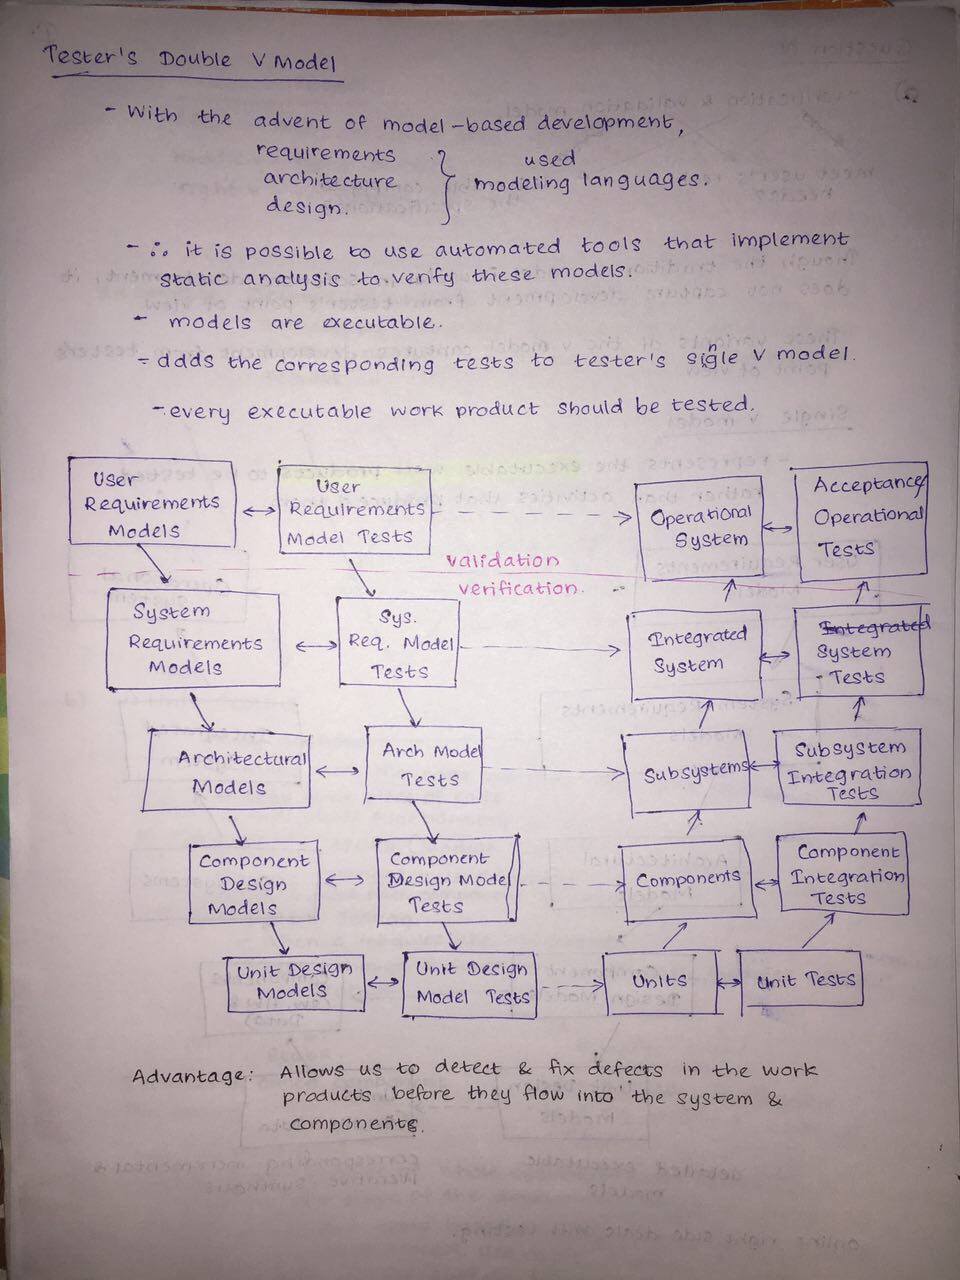 Tester's Double V Model
- With the advent of model-based development,
requirements
architecture
design.
used
modeling languages.
- ∴ it is possible to use automated tools that implement
static analysis to verify these models.
- models are executable.
- adds the corresponding tests to tester's single V model.
- every executable work product should be tested.
User
Requirements
Models
User
Requirements
Model Tests
Operational
System
Acceptance
Operational
Tests
validation
verification.
System
Requirements
Models
Sys.
Req. Model
Tests
Integrated
System
Integrated
System
Tests
Architectural
Models
Arch Model
Tests
Subsystems
Subsystem
Integration
Tests
Component
Design
Models
Component
Design Model
Tests
Components
Component
Integration
Tests
Unit Design
Models
Unit Design
Model Tests
Units
Unit Tests
Advantage: Allows us to detect & fix defects in the work
products before they flow into the system &
components.